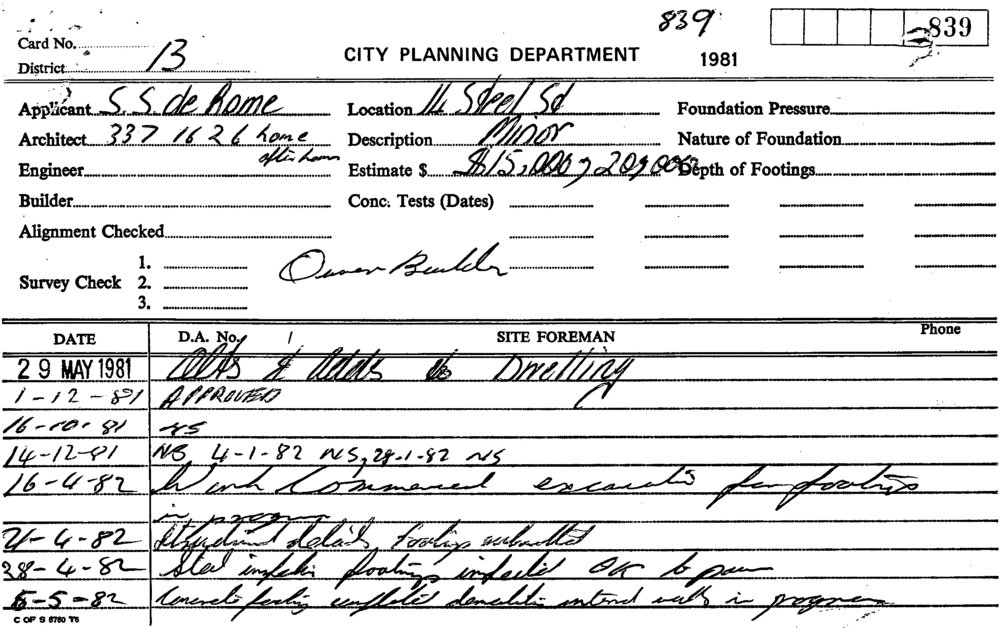 839
839
Card No.
District 13
CITY PLANNING DEPARTMENT 1981
Applicant S.S de Rome Location 14 Steel St Foundation Pressure
Architect 337 1626 home Description Minor Nature of Foundation
after hours
Engineer Estimate $ $15,000, 20,000 Depth of Footings
Builder Conc. Tests (Dates)
Alignment Checked
Survey Check 1. 2. 3.
Owner Builder
DATE D.A. No. SITE FOREMAN Phone
29 MAY 1981 Alts & Adds to Dwelling
1-12-81 APPROVED
16-10-81 NS
14-12-81 NS 4-1-82 NS, 28-1-82 NS
16-4-82 Work Commenced excavation for footings
in progress
21-4-82 Structural details footings submitted
28-4-82 Steel footings inspected OK to pour
5-5-82 Concrete footing completed demolition internal walls in progress
C OF S 5750 T5